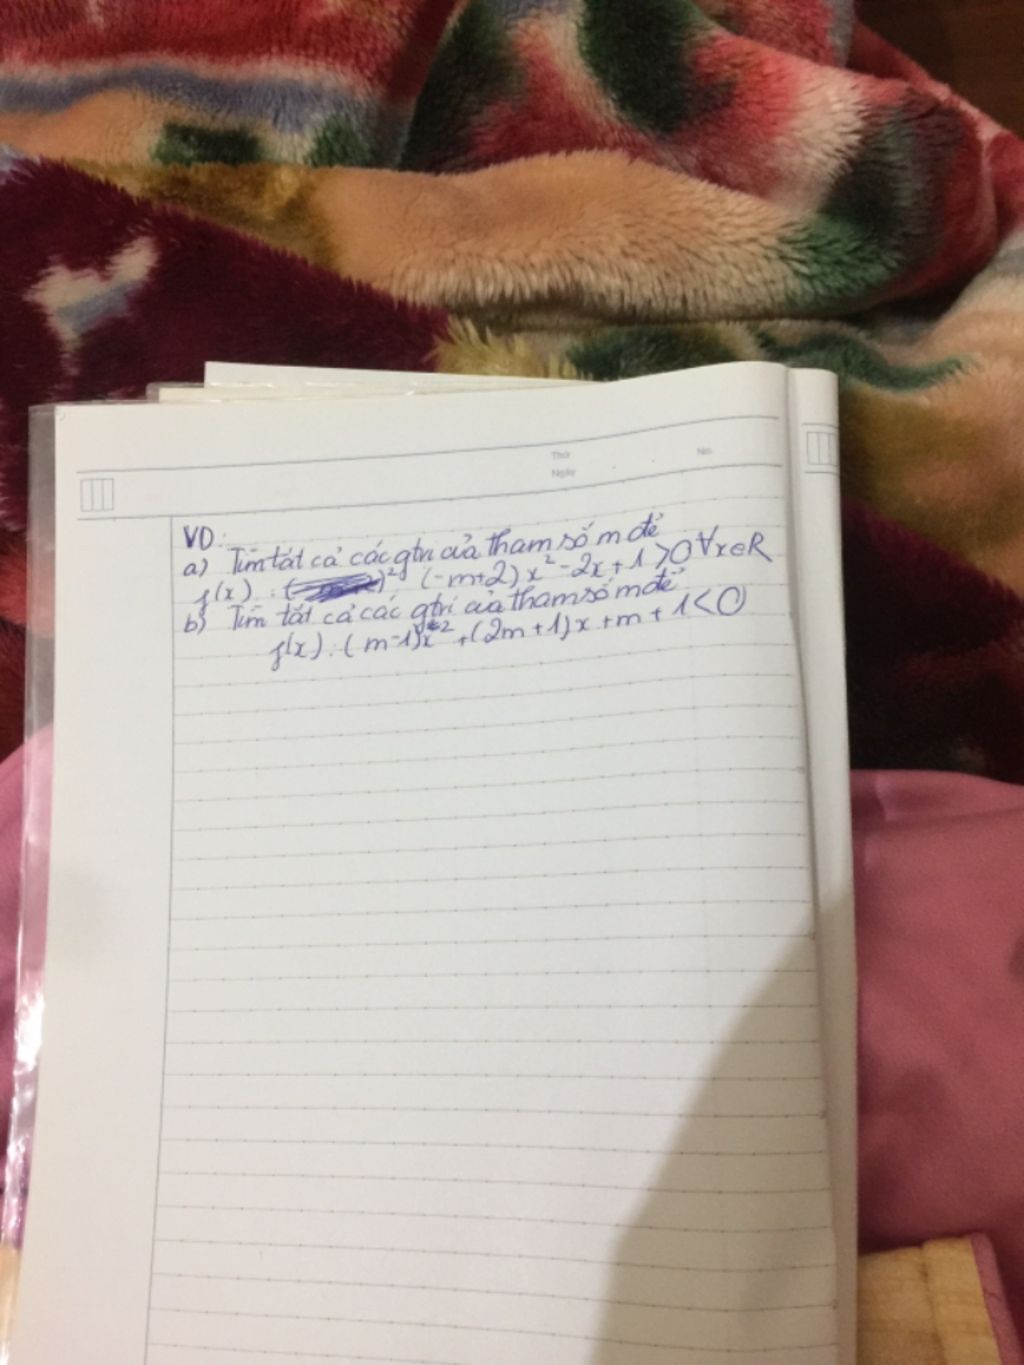 Thứ
No.
Ngày
VD:
a) Tìm tất cả các gtrị của tham số m để
f(x) : (-m+2)x² - 2x + 1 > 0 ∀x∈R
b) Tìm tất cả các gtrị của tham số m để
f(x) : (m-1)x² + (2m+1)x + m + 1 < 0